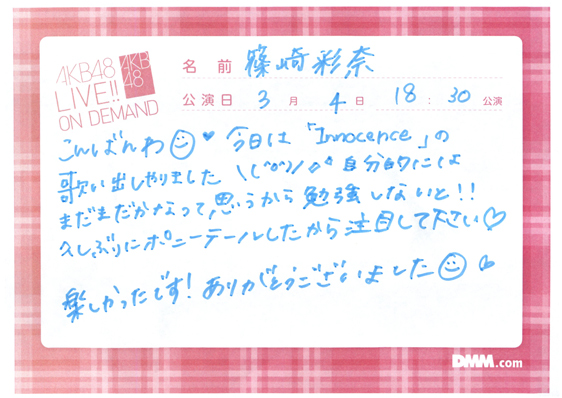 AKB48
LIVE!!
ON DEMAND
AKB
48
名前 篠崎彩奈
公演日 3月4日 18:30公演
こんばんわ☺♥ 今日は「Innocence」の
歌い出しやりました \(^o^)/ 自分的には
まだまだかなって思うから勉強しないと!!
久しぶりにポニーテールしたから注目して下さい♡
楽しかったです! ありがとうございました☺
DMM.com